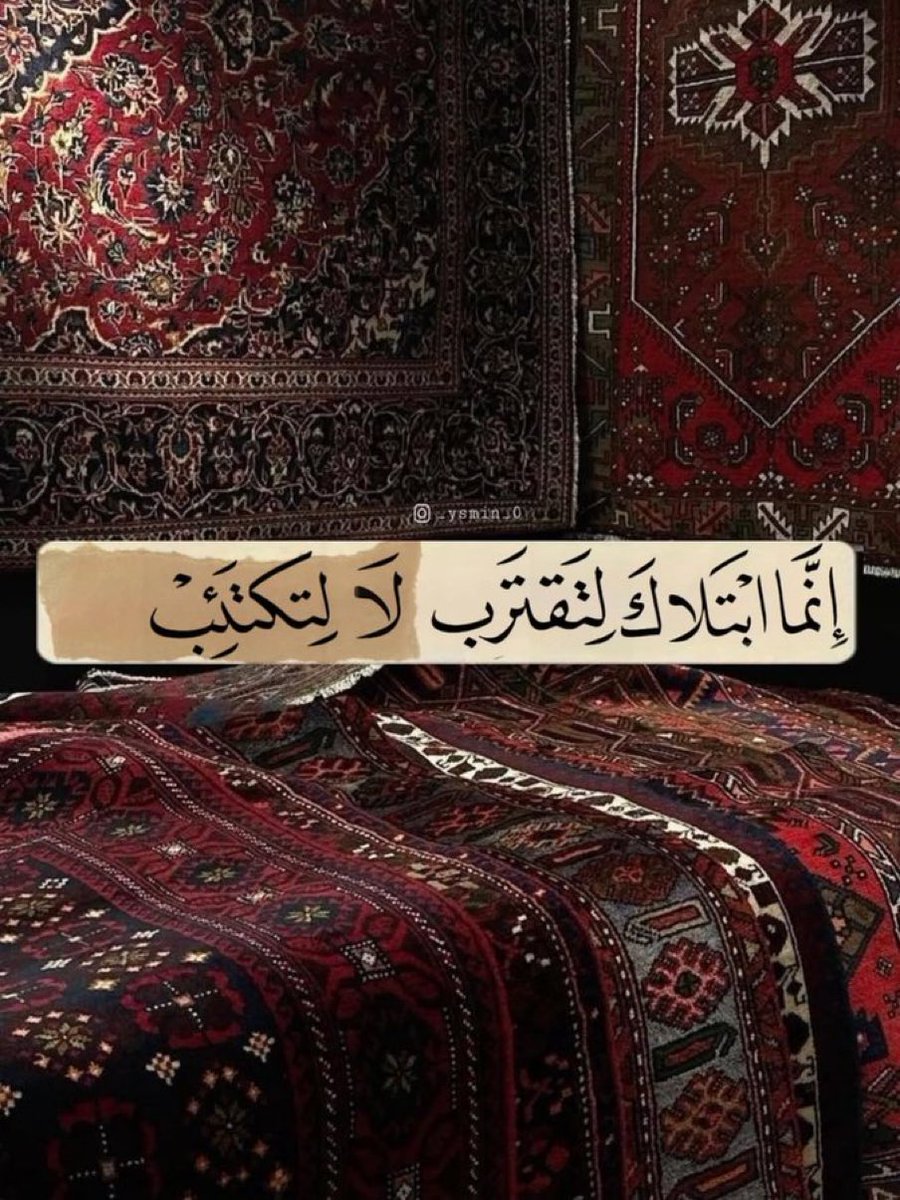 _ysmin_0
إِنَّمَا ابْتَلاكَ لِتَقتَرَب لَا لِتَكتَئِبْ